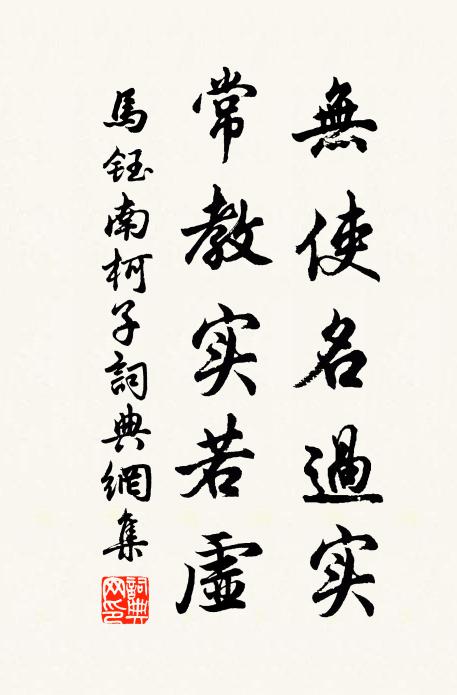 無使名過实
常教实若虛
馬鈺南柯子詞典網集
詞典网印